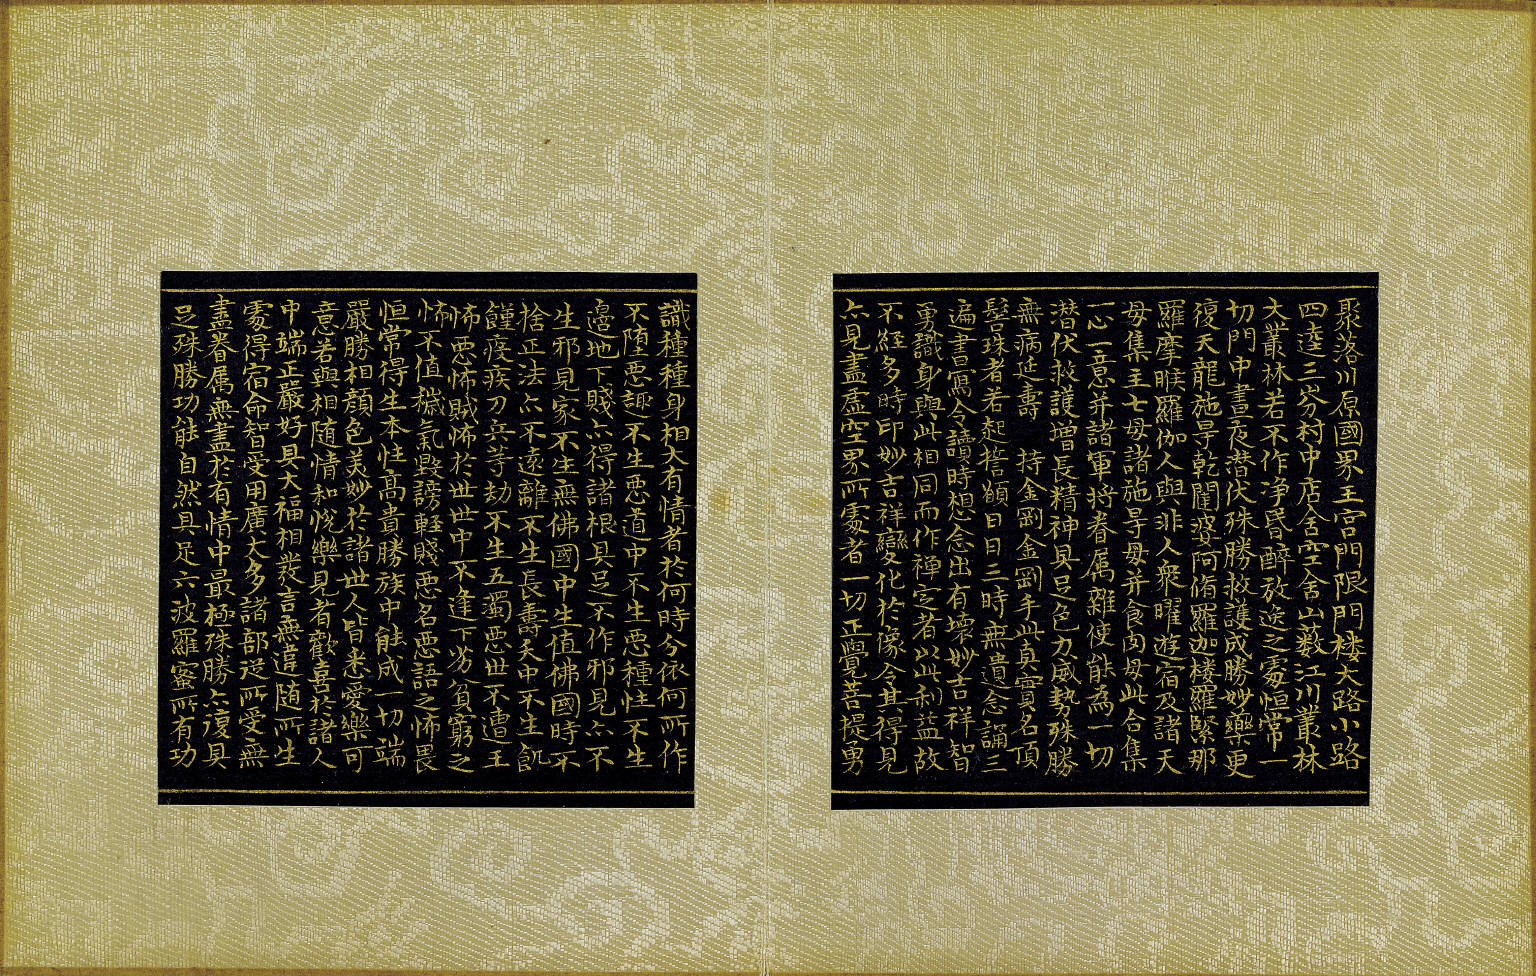 聚落川原國界王宮門限門楼大路小路
四逵三岔村中店舍空舍山薮江川叢林
大叢林若不作净昏醉放逸之䖏恒常一
切門中晝夜潜伏殊勝救護成勝妙樂更
復天龍施㝵乾闥婆阿脩羅迦楼羅緊那
羅摩睺羅伽人與非人衆曜遊宿及諸天
母集主七母諸施㝵母并食肉母此合集
一心一意并諸軍将眷属雜使能為一切
潜伏救護增長精神具足色力威勢殊勝
無病延壽　持金剛金剛手此真實名頂
髻珠者若起誓願日日三時無遺念誦三
遍書寫令讀時想念出有壞妙吉祥智
勇識身與此相同而作禪定者以此利益故
不経多時印妙吉祥變化於像令其得見
亦見盡虚空界所䖏者一切正覺菩提勇
識種種身相大有情者於何時分依何所作
不堕惡趣不生惡道中不生惡種性不生
邊地下賤亦得諸根具足不作邪見亦不
生邪見家不生無佛國中生值佛國時不
捨正法亦不遠離不生長壽天中不生飢
饉疫疾刀兵等劫不生五濁惡世不遭王
怖惡怖賊怖於世世中不逢下劣貧窮之
怖不值穢氣毀謗輕賤惡名惡語之怖畏
恒常得生本性髙貴勝族中能成一切端
嚴勝相顔色美妙於諸世人皆悉愛樂可
意若與相随情和悦樂見者歡喜於諸人
中端正嚴好具大福相發言無違随所生
䖏得宿命智受用廣大多諸部從所愛無
盡眷属無盡於有情中最極殊勝亦復具
足殊勝功能自然具足六波羅蜜所有功